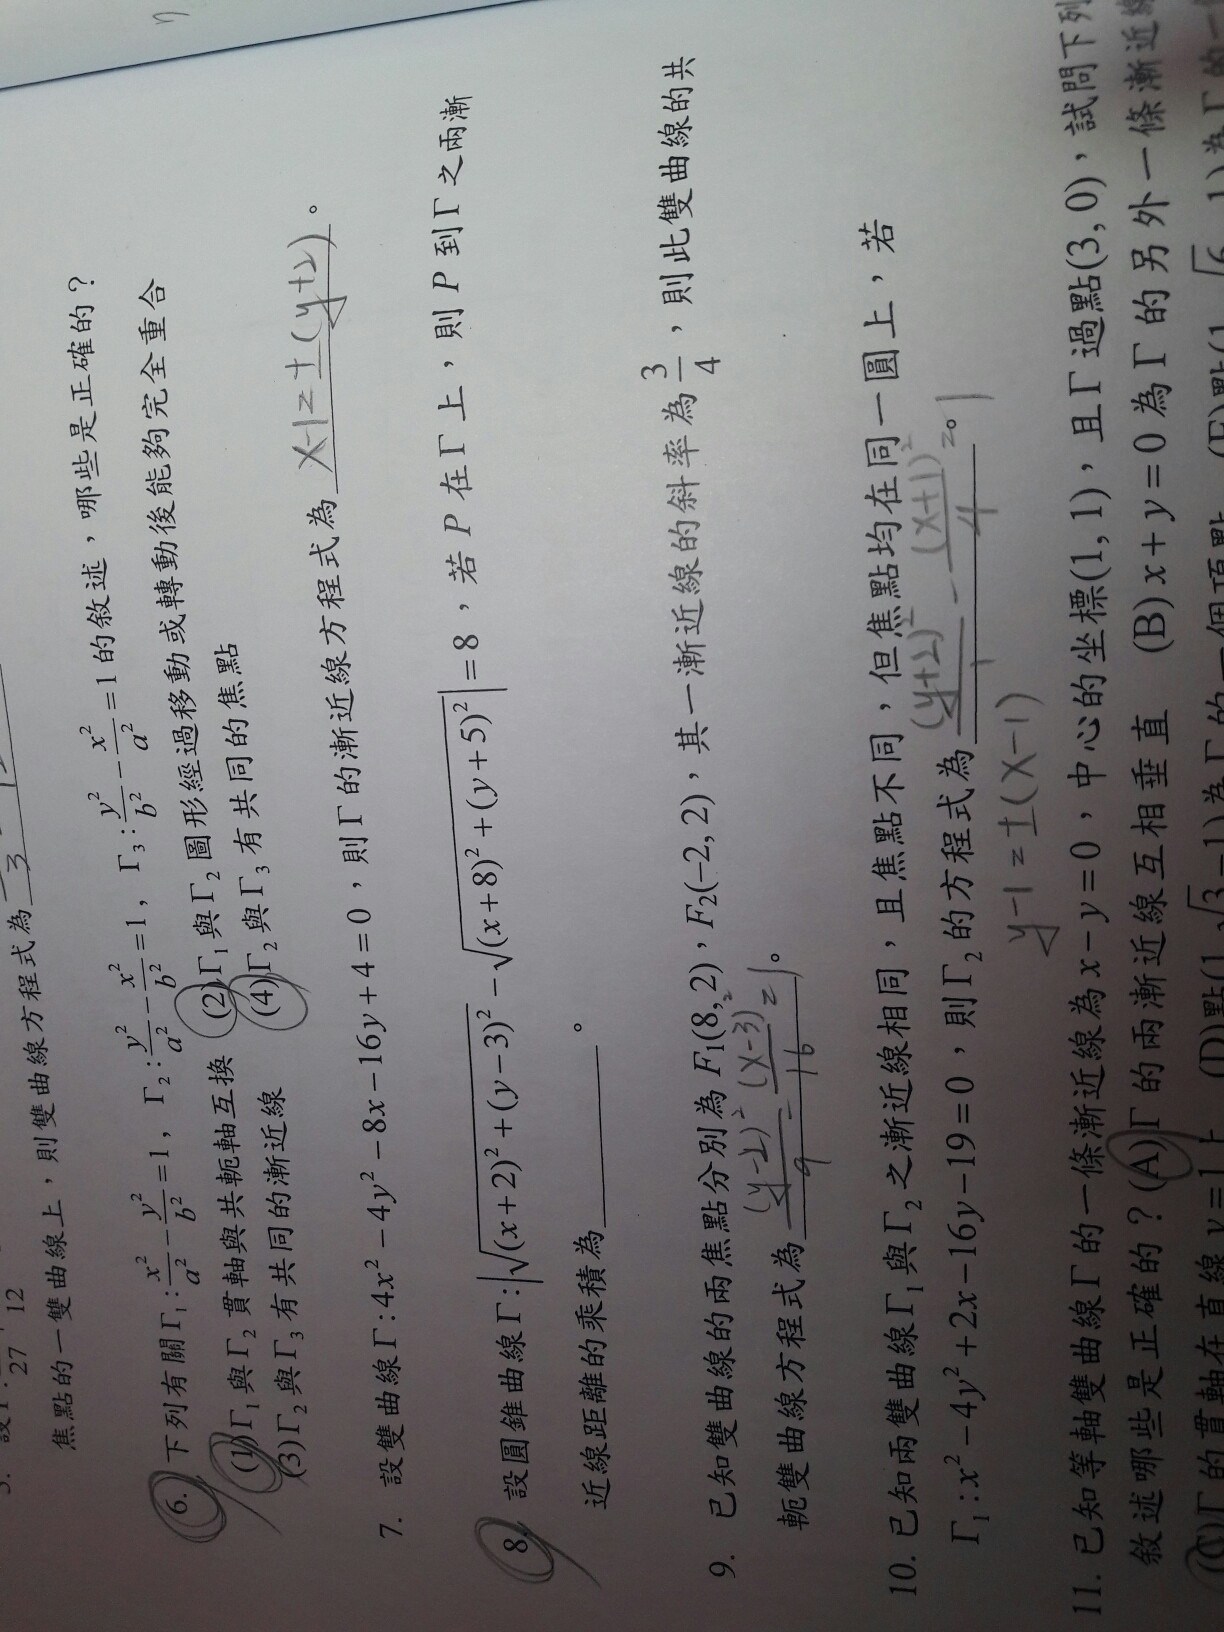 27 12
焦點的一雙曲線上，則雙曲線方程式為
6. 下列有關Γ₁:x²/a²−y²/b²=1，Γ₂:y²/a²−x²/b²=1，Γ₃:y²/b²−x²/a²=1的敘述，哪些是正確的？
(1)Γ₁與Γ₂貫軸與共軛軸互換 (2)Γ₁與Γ₂圖形經過移動或轉動後能夠完全重合
(3)Γ₂與Γ₃有共同的漸近線 (4)Γ₂與Γ₃有共同的焦點
7. 設雙曲線Γ:4x²−4y²−8x−16y+4=0，則Γ的漸近線方程式為 x-1=±(y+2)。
8. 設圓錐曲線Γ:|√((x+2)²+(y−3)²)−√((x+8)²+(y+5)²)|=8，若P在Γ上，則P到Γ之兩漸
近線距離的乘積為______。
9. 已知雙曲線的兩焦點分別為F₁(8,2)，F₂(−2,2)，其一漸近線的斜率為3/4，則此雙曲線的共
軛雙曲線方程式為 (y-2)²/9 - (x-3)²/16 = 1。
10. 已知兩雙曲線Γ₁與Γ₂之漸近線相同，且焦點不同，但焦點均在同一圓上，若
Γ₁:x²−4y²+2x−16y−19=0，則Γ₂的方程式為 (y+2)²/1 - (x+1)²/4 = 1。
y-1=±(x-1)
11. 已知等軸雙曲線Γ的一條漸近線為x−y=0，中心的坐標(1,1)，且Γ過點(3,0)，試問下列
敘述哪些是正確的？(A)Γ的兩漸近線互相垂直 (B)x+y=0為Γ的另外一條漸近線
Γ的貫軸在直線y=1上